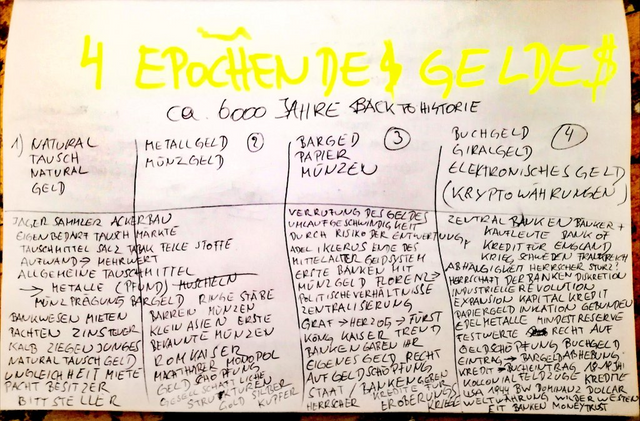 4 EPOCHEN DE$ GELDE$
ca. 6000 JAHRE BACK TO HISTORIE
1) NATURAL
TAUSCH
NATURAL
GELD
METALLGELD 2
MÜNZGELD
BARGED 3
PAPIER
MÜNZEN
BUCHGELD 4
GIRALGELD
ELEKTRONISCHES GELD
(KRYPTOWÄHRUNGEN)
JÄGER SAMMLER ACKERBAU
EIGENBEDARF TAUSCH MÄRKTE
TAUSCHMITTEL SALZ TABAK TEILE STOFFE
AUFWAND → MEHRWERT
ALLGEMEINE TAUSCHMITTEL
→ METALLE (PFUND) MUSCHELN
MÜNZPRÄGUNG BARGELD RINGE STÄBE
BANKWESEN MIETEN BARREN MÜNZEN
PACHTEN ZINSTEUER KLEIN ASIEN ERSTE
KALB ZIEGENJUNGES BEKANNTE MÜNZEN
NATURAL TAUSCH GELD ROM KAISER
UNGLEICHHEIT MIETE MACHTHABER MONOPOL
PACHT BESITZER GELDSCHÖPFUNG
BITTSTELLER GESELLSCHAFTLICHE
STRUKTUREN
GOLD SILBER
KUPFER
VERRUFUNG DES GELDES
UMLAUFGESCHWINDIGKEIT
DURCH RISIKO DER ENTWERTUNG
ADEL KLERUS ENDE DES
MITTELALTER GELDSYSTEM
ERSTE BANKEN MIT
MÜNZGELD FLORENZ →
POLITISCHE VERHÄLTNISSE
ZENTRALISIERUNG
GRAF → HERZOG → FÜRST
KÖNIG KAISER TREND
BANKEN GABEN IHR
EIGENES GELD RECHT
AUF GELDSCHÖPFUNG
STAAT / BANKEN GEREN
HERRSCHER KREDITE FÜR
EROBERUNGS
KRIEGE
ZENTRALBANKEN BANKER +
KAUFLEUTE BANK OF
KREDIT FÜR ENGLAND
KRIEG, SCHWEDEN FRANKREICH
ABHÄLGIGKEIT HERRSCHER STURZ!
HERRSCHAFT DER BANKEN DUKRETION
INDUSTRIELLE REVOLUTION
EXPANSION KAPITAL KREDIT
PAPIERGELD INKATION GEBUNDEN
EDELMETALLE MINDESTRESERVE
FESTWERTE RECHT AUF
GELDSCHÖPFUNG BUCHGELD
EINTRAG → BARGELDABHEBUNG
KREDIT → BUCHEINTRAG
KOLONIAL FELDZÜGE KREDITE
USA 1944 BW DOMINANZ DOLLAR
WELTWÄHRUNG WILDER WESTEN
BANKEN MONEYTRUST